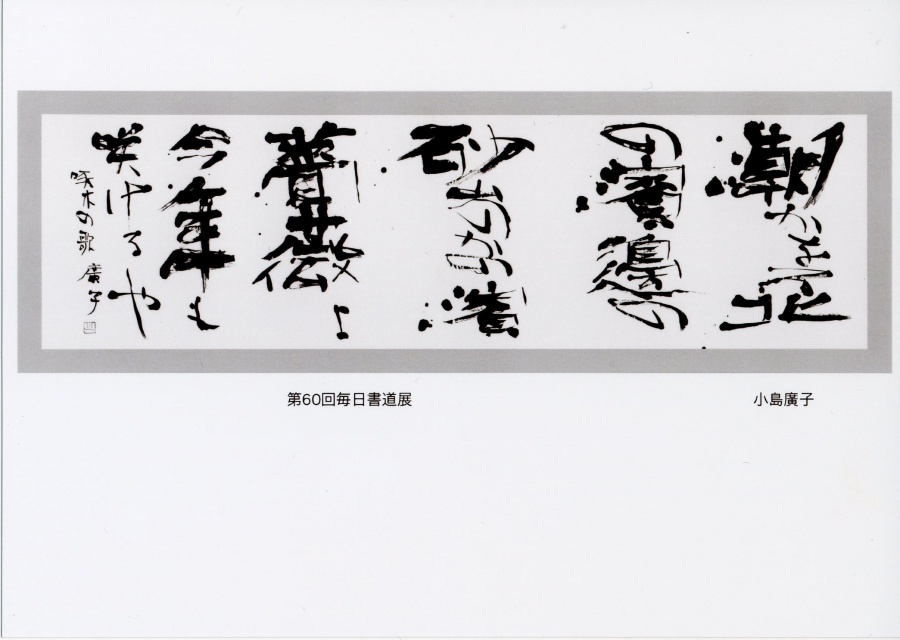 潮かをる北
の濱邊の
砂山のかの濱
薔薇よ
今年も
咲けるや
啄木の歌 廣子
第60回毎日書道展
小島廣子